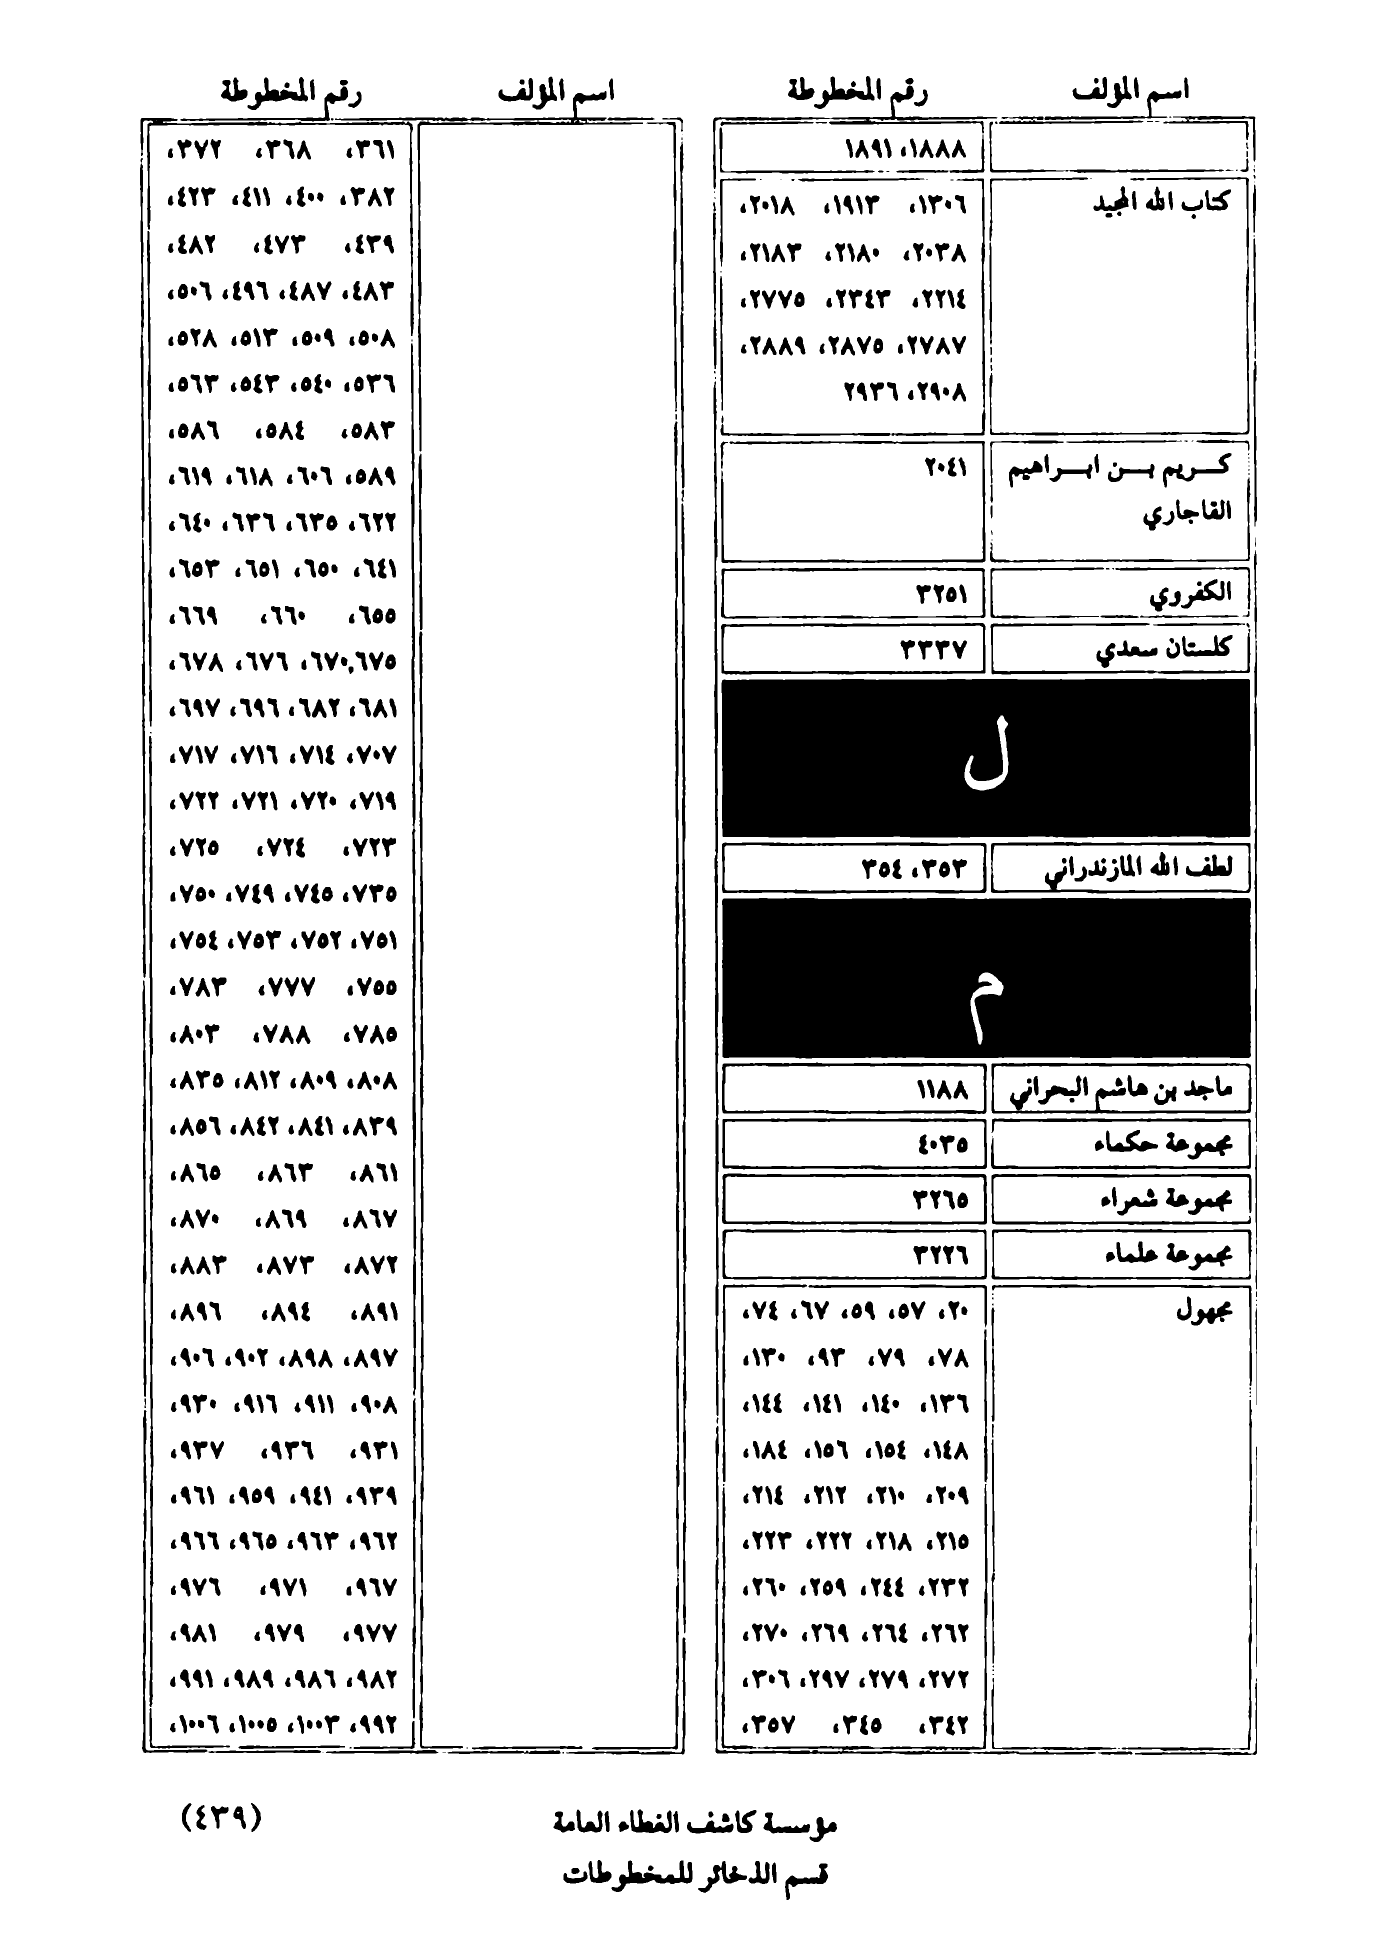 اسم المؤلف رقم المخطوطة
١٨٨٨، ١٨٩١
كتاب الله المجيد ١٣٠٦، ١٩١٣، ٢٠١٨،
٢٠٣٨، ٢١٨٠، ٢١٨٣،
٢٢١٤، ٢٣٤٣، ٢٧٧٥،
٢٧٨٧، ٢٨٧٥، ٢٨٨٩،
٢٩٠٨، ٢٩٣٦
كـــريم بـــن ابـــراهيم ٢٠٤١
القاجاري
الكفروي ٣٢٥١
كلستان سعدي ٣٣٣٧
ل
لطف الله المازندراني ٣٥٣، ٣٥٤
م
ماجد بن هاشم البحراني ١١٨٨
مجموعة حكماء ٤٠٣٥
مجموعة شعراء ٣٢٦٥
مجموعة علماء ٣٢٢٦
مجهول ٢٠، ٥٧، ٥٩، ٦٧، ٧٤،
٧٨، ٧٩، ٩٣، ١٣٠،
١٣٦، ١٤٠، ١٤١، ١٤٤،
١٤٨، ١٥٤، ١٥٦، ١٨٤،
٢٠٩، ٢١٠، ٢١٢، ٢١٤،
٢١٥، ٢١٨، ٢٢٢، ٢٢٣،
٢٣٢، ٢٤٤، ٢٥٩، ٢٦٠،
٢٦٢، ٢٦٤، ٢٦٩، ٢٧٠،
٢٧٢، ٢٧٩، ٢٩٧، ٣٠٦،
٣٤٢، ٣٤٥، ٣٥٧،
اسم المؤلف رقم المخطوطة
٣٦١، ٣٦٨، ٣٧٢،
٣٨٢، ٤٠٠، ٤١١، ٤٢٣،
٤٣٩، ٤٧٣، ٤٨٢،
٤٨٣، ٤٨٧، ٤٩٦، ٥٠٦،
٥٠٨، ٥٠٩، ٥١٣، ٥٢٨،
٥٣٦، ٥٤٠، ٥٤٣، ٥٦٣،
٥٨٣، ٥٨٤، ٥٨٦،
٥٨٩، ٦٠٦، ٦١٨، ٦١٩،
٦٢٢، ٦٣٥، ٦٣٦، ٦٤٠،
٦٤١، ٦٥٠، ٦٥١، ٦٥٣،
٦٥٥، ٦٦٠، ٦٦٩،
٦٧٠,٦٧٥، ٦٧٦، ٦٧٨،
٦٨١، ٦٨٢، ٦٩٦، ٦٩٧،
٧٠٧، ٧١٤، ٧١٦، ٧١٧،
٧١٩، ٧٢٠، ٧٢١، ٧٢٢،
٧٢٣، ٧٢٤، ٧٢٥،
٧٣٥، ٧٤٥، ٧٤٩، ٧٥٠،
٧٥١، ٧٥٢، ٧٥٣، ٧٥٤،
٧٥٥، ٧٧٧، ٧٨٣،
٧٨٥، ٧٨٨، ٨٠٣،
٨٠٨، ٨٠٩، ٨١٢، ٨٣٥،
٨٣٩، ٨٤١، ٨٤٢، ٨٥٦،
٨٦١، ٨٦٣، ٨٦٥،
٨٦٧، ٨٦٩، ٨٧٠،
٨٧٢، ٨٧٣، ٨٨٣،
٨٩١، ٨٩٤، ٨٩٦،
٨٩٧، ٨٩٨، ٩٠٢، ٩٠٦،
٩٠٨، ٩١١، ٩١٦، ٩٣٠،
٩٣١، ٩٣٦، ٩٣٧،
٩٣٩، ٩٤١، ٩٥٩، ٩٦١،
٩٦٢، ٩٦٣، ٩٦٥، ٩٦٦،
٩٦٧، ٩٧١، ٩٧٦،
٩٧٧، ٩٧٩، ٩٨١،
٩٨٢، ٩٨٦، ٩٨٩، ٩٩١،
٩٩٢، ١٠٠٣، ١٠٠٥، ١٠٠٦،
مؤسسة كاشف الغطاء العامة
قسم الذخائر للمخطوطات
(٤٣٩)